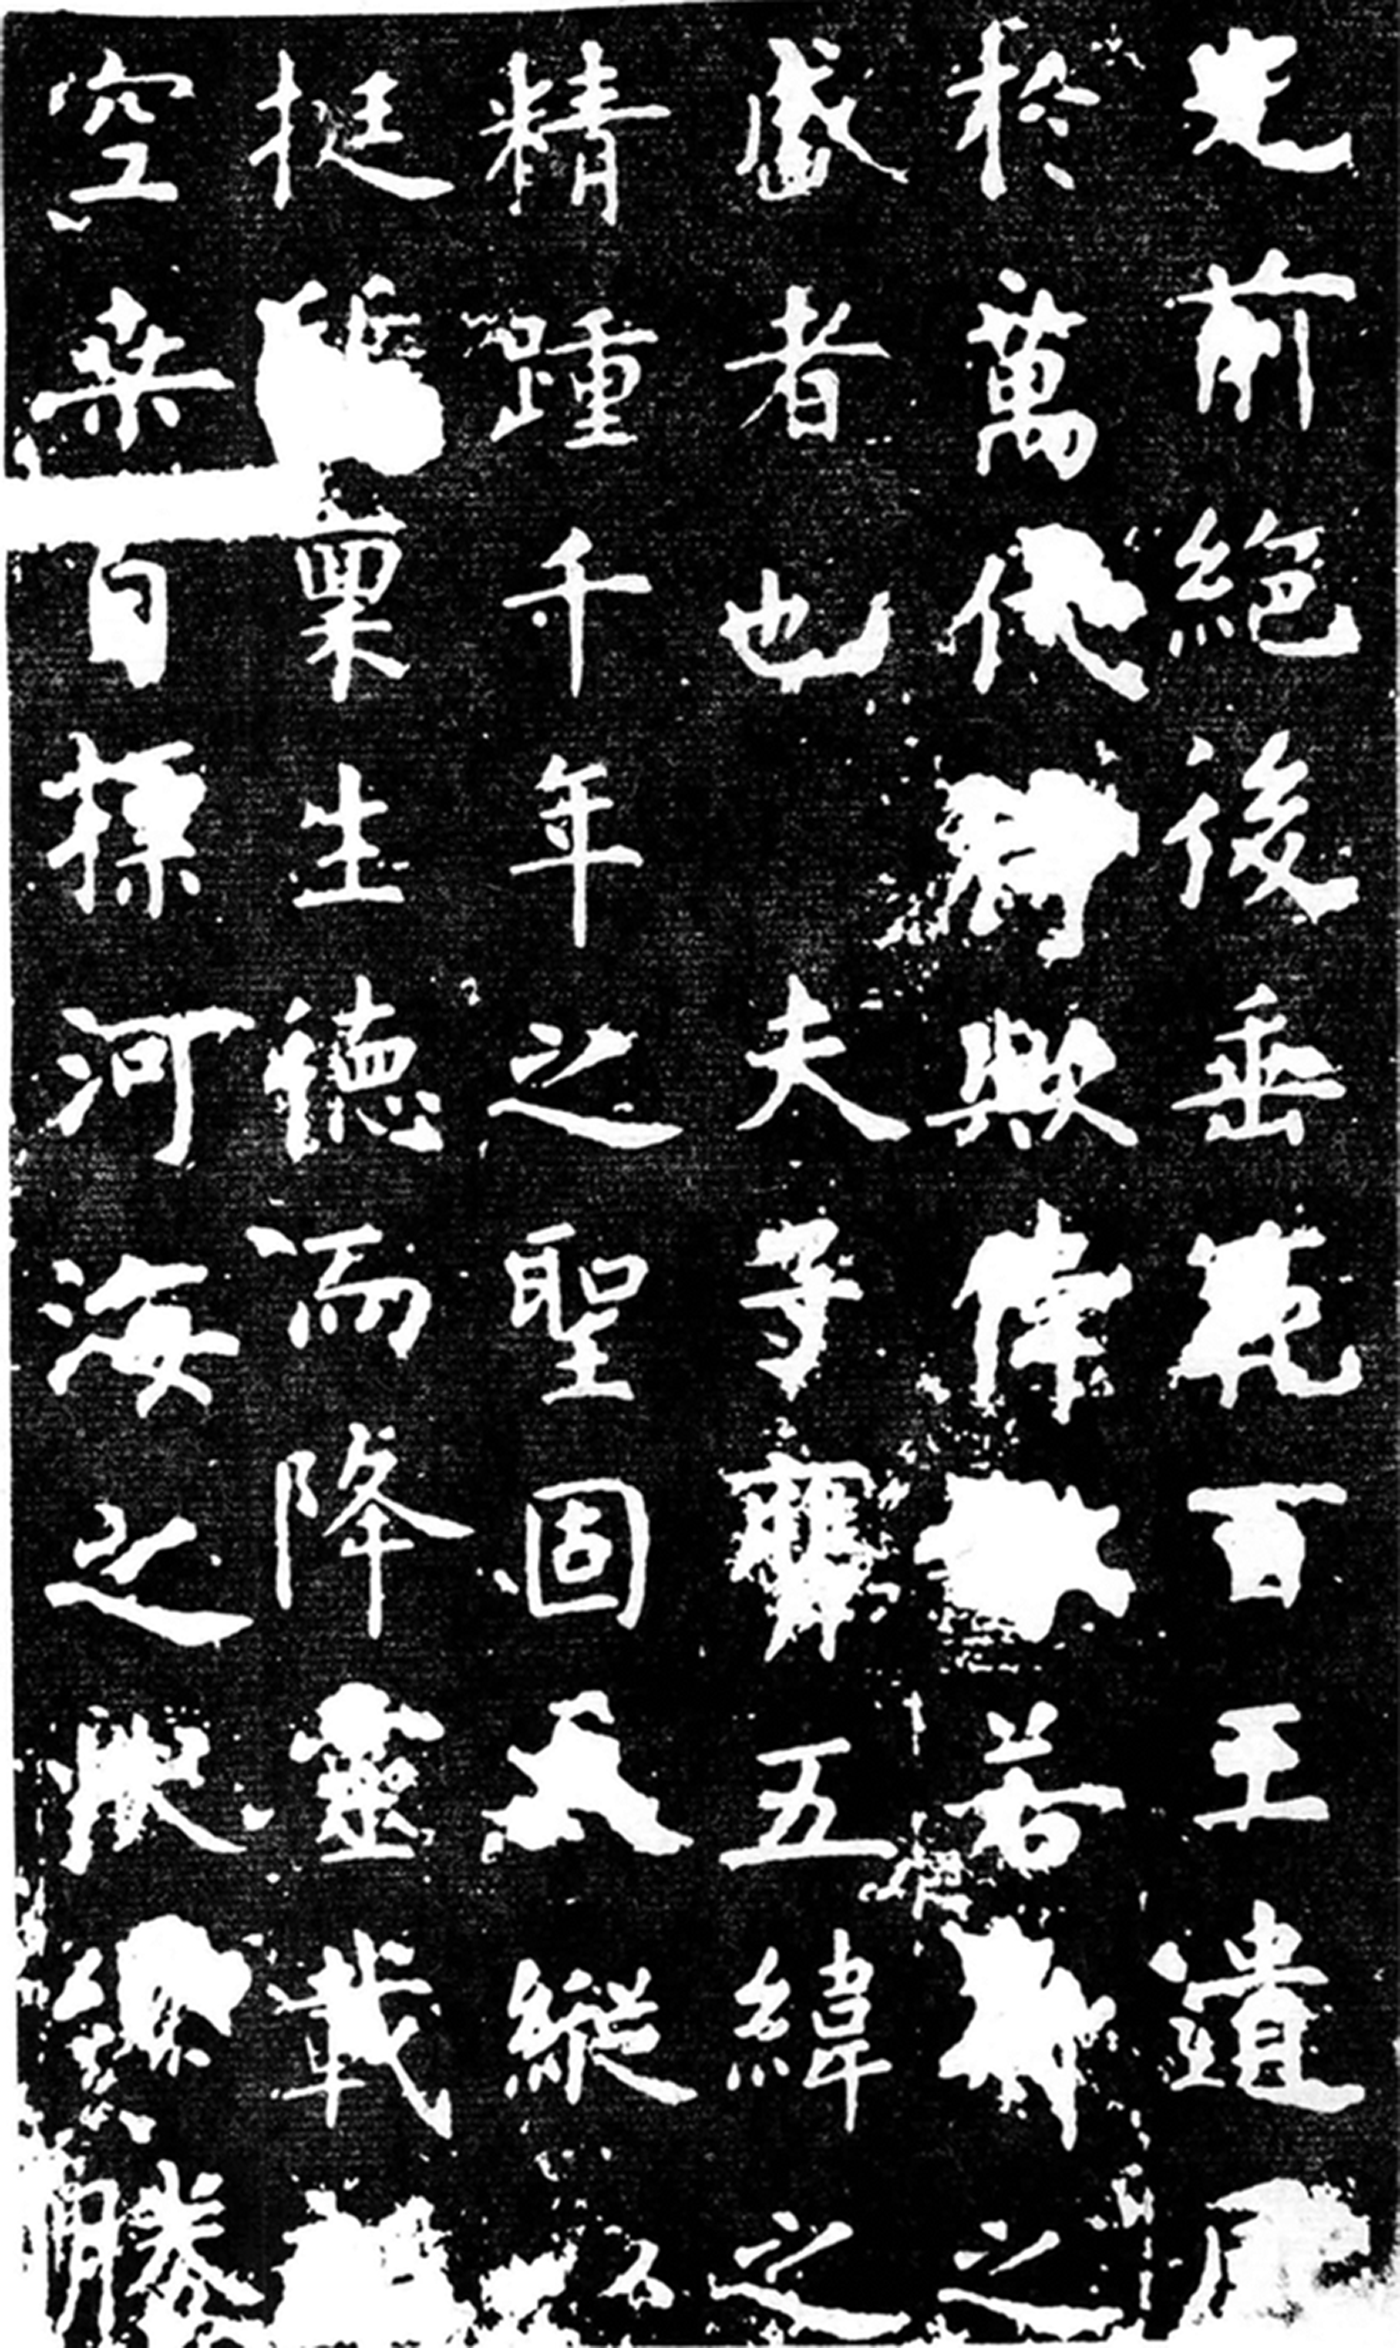 光前絕後垂範百王遺風
於萬代猗歟偉若之
盛者也夫子膺五緯之
精踵千年之聖固天縱
挺質稟生德而降靈載
空桒自摽河海之狀纔勝